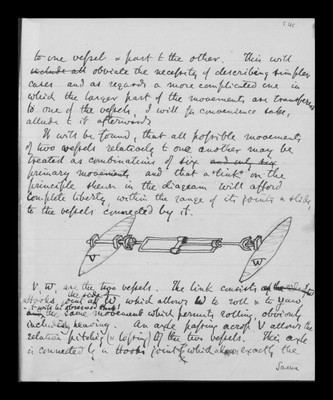 to one vessel or part to the other. This will
include all obviate the necessity of describing simpler
cases and as regards a more complicated one in
which the larger part of the movements are transferred
to one of the vessels, I will for convenience sake,
allude to it afterwards
It will be found, that all possible movements
of two vessels relatively to one another may be
treated as combinations of six and only six
primary movements and that a "link" on the
principle shewn in the diagram will afford
complete liberty, within the range of its joints & slide,
to the vessels connected by it.
V
W
V, W, are the two vessels. The link consists
a Hooks joint at W which allows W to roll & to yaw,
the same movement which permits rolling, obviously
including heaving. An axle passing across V allows the
relative pitching (or lofting) of the two vessels. This axle
is connected by a Hooks joint which exactly the
Same